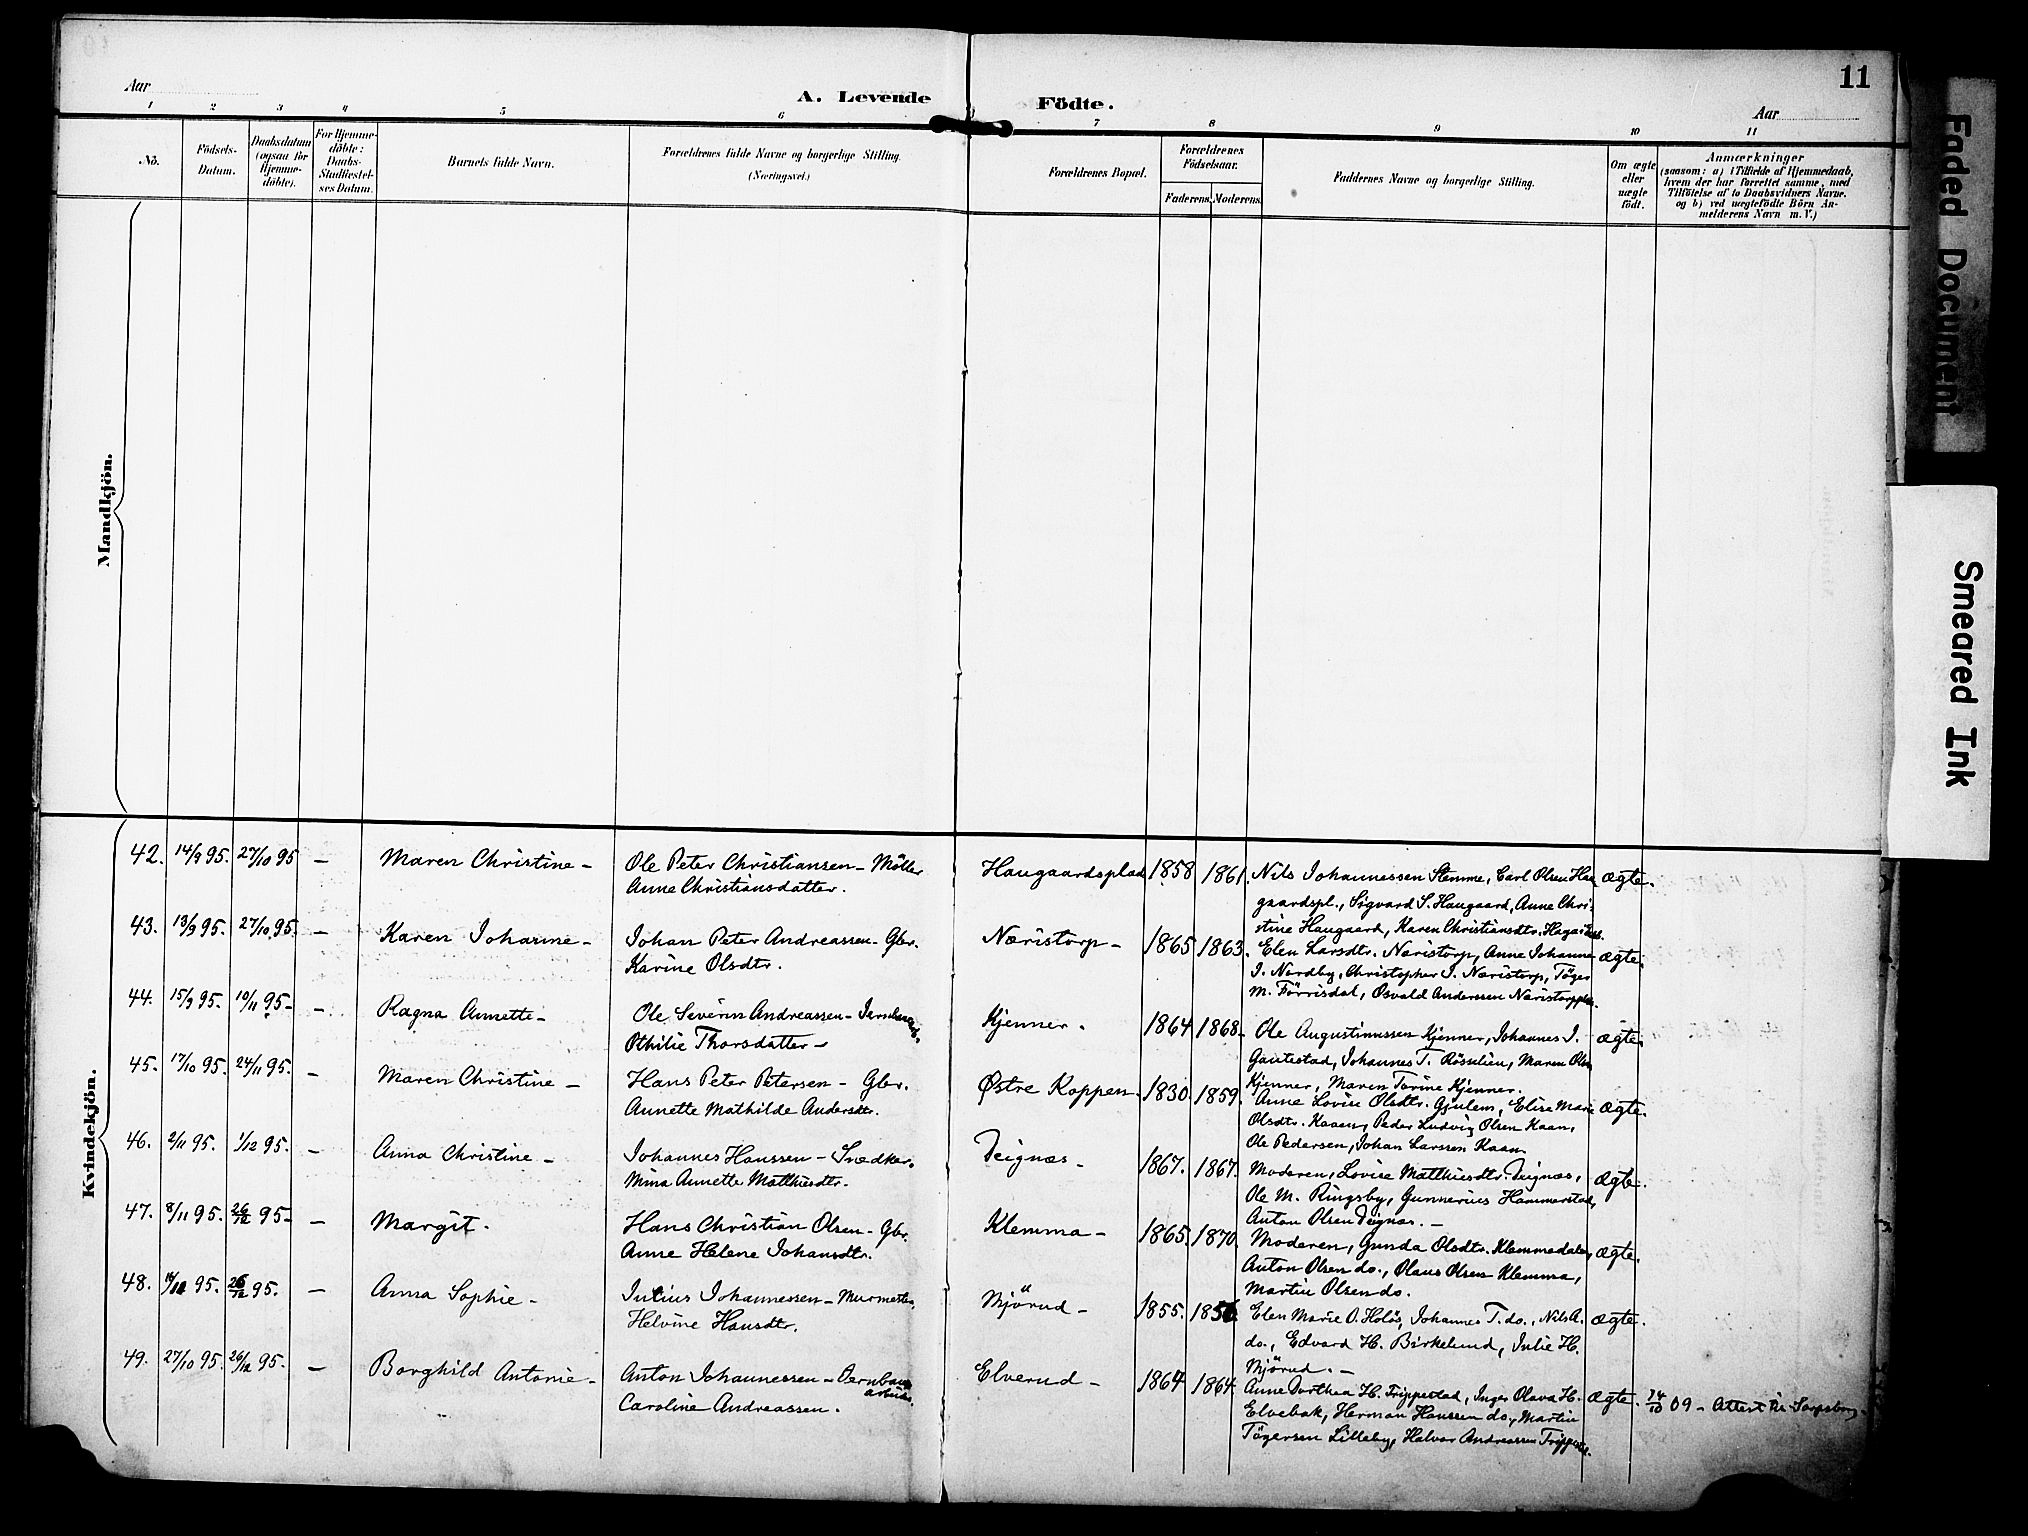 11
Aar
A. Levende Födte.
Aar
1 2 3 4 5 6 7 8 9 10 11
No. Födsels-Datum. Daabsdatum (ogsaa för Hjemme-döbte). For Hjemme-döbte: Daabs-Stadfæstel-ses Datum. Barnets fulde Navn. Forældrenes fulde Navne og borgerlige Stilling. (Næringsvei.) Forældrenes Bopæl. Forældrenes Födselsaar. Faderens. Moderens. Faddernes Navne og borgerlige Stilling. Om ægte eller uægte födt. Anmærkninger (saasom: a) i Tilfælde af Hjemmedaab, hvem der har forrettet samme, med Tilföielse af to Daabsvidners Navne. og b) ved uægtefödte Börn An-melderens Navn m. V.)
Mandkjön.
Kvindekjön.
42. 14/9 95. 27/10 95 – Maren Christine – Ole Peter Christiansen – Möller Haugaardsplads 1858 1861. Nils Johannessen Stemme, Carl Olsen Hau ægte.
Anne Christiansdatter. gaardspl., Sigvard S. Haugaard, Anne Chri-
stine Haugaard, Karen Christiansdtr.
43. 13/9 95. 27/10 95. – Karen Johanne – Johan Peter Andreassen – Gbr. Næristorp – 1865 1863. Elen Larsdtr. Næristorp, Anne Johanne ægte.
Karine Olsdtr. J. Nordby, Christopher J. Næristorp, Töger
M. Förrisdal, Osvald Anderssen
44. 15/9 95. 10/11 95 – – Ragna Annette – Ole Severin Andreassen – Kjenner. 1864 1868. Ole Augustinussen Kjenner, Johannes J. ægte.
Othilie Thorsdatter – Gautestad, Johannes T. Rösælien, Maren Olsen
Kjenner, Maren Torine Kjenner.
45. 17/10 95. 24/11 95. – Maren Christine – Hans Peter Petersen – Gbr. Østre Koppen. 1830 1859. Anne Lovise Olsdtr. Gjulem, Elise Marie ægte.
Annette Mathilde Andersdtr. Olsdtr. Kaan, Peder Ludvig Olsen Kaan,
Ole Pedersen, Johan Larssen Kaan
46. 2/11 95. 1/12 95. – Anna Christine – Johannes Hanssen – Snedker. Teignæs – 1867. 1867. Moderen, Lovise Matthiesdtr. Teignæs, ægte.
Mina Annette Matthiesdtr. Ole M. Ringsby, Gunnerius Hammerstad,
Anton Olsen Teignæs. –
47. 8/11 95. 26/12 95 – – Margit. Hans Christian Olsen – Gbr. Klemma – 1865. 1870. Moderen, Gunda Olsdtr. Klemmedalen, ægte.
Anne Helene Johansdtr. Anton Olsen do., Olaus Olsen Klemma,
Martin Olsen do.
48. 95. 26/12 95. – Anna Sophie – Julius Johannessen – Murmester. Mjörud – 1855. Elen Marie O. Holös, Johannes T. do., Nils A. ægte.
Helvine Hansdtr. do., Edvard H. Birkelund, Julie H.
Mjörud. –
49. 27/10 95. 26/12 95. – Borghild Antonie – Anton Johannessen – Jernbane arbeid. Elverud – 1864 1864. Anne Dorthea H. Trippestad, Inger Olava H. ægte. 14/10 09 – Attest til Sarpsborg –
Caroline Andreassen. Elvebak, Herman Hanssen do., Martin
Tögersen Lilleby, Halvor Andreassen
Faded Document
Smeared Ink